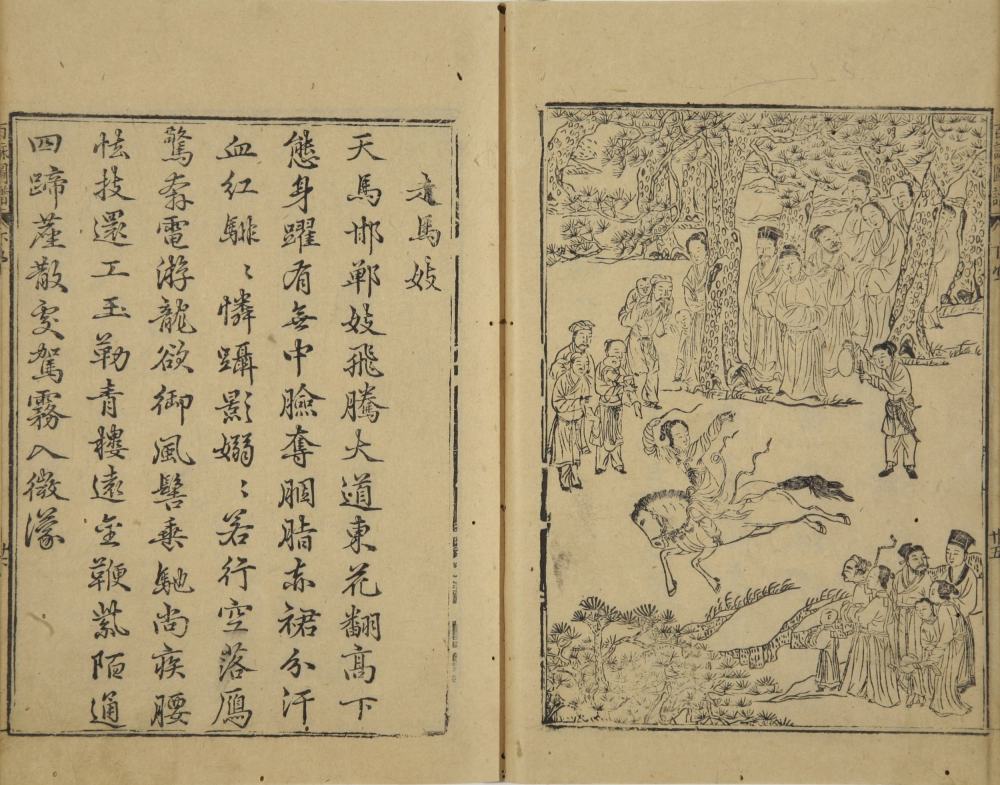 廿五
走馬妓
天馬邯鄲妓飛騰大道東花翻高下
態身躍有無中臉奪胭脂赤裙分汗
血紅騑〻憐躡影嫋〻若行空落鴈
驚奔電游龍欲御風髻垂馳尚疾腰
怯技還工玉勒青樓遠金鞭紫陌通
四蹄塵散處駕霧入微濛